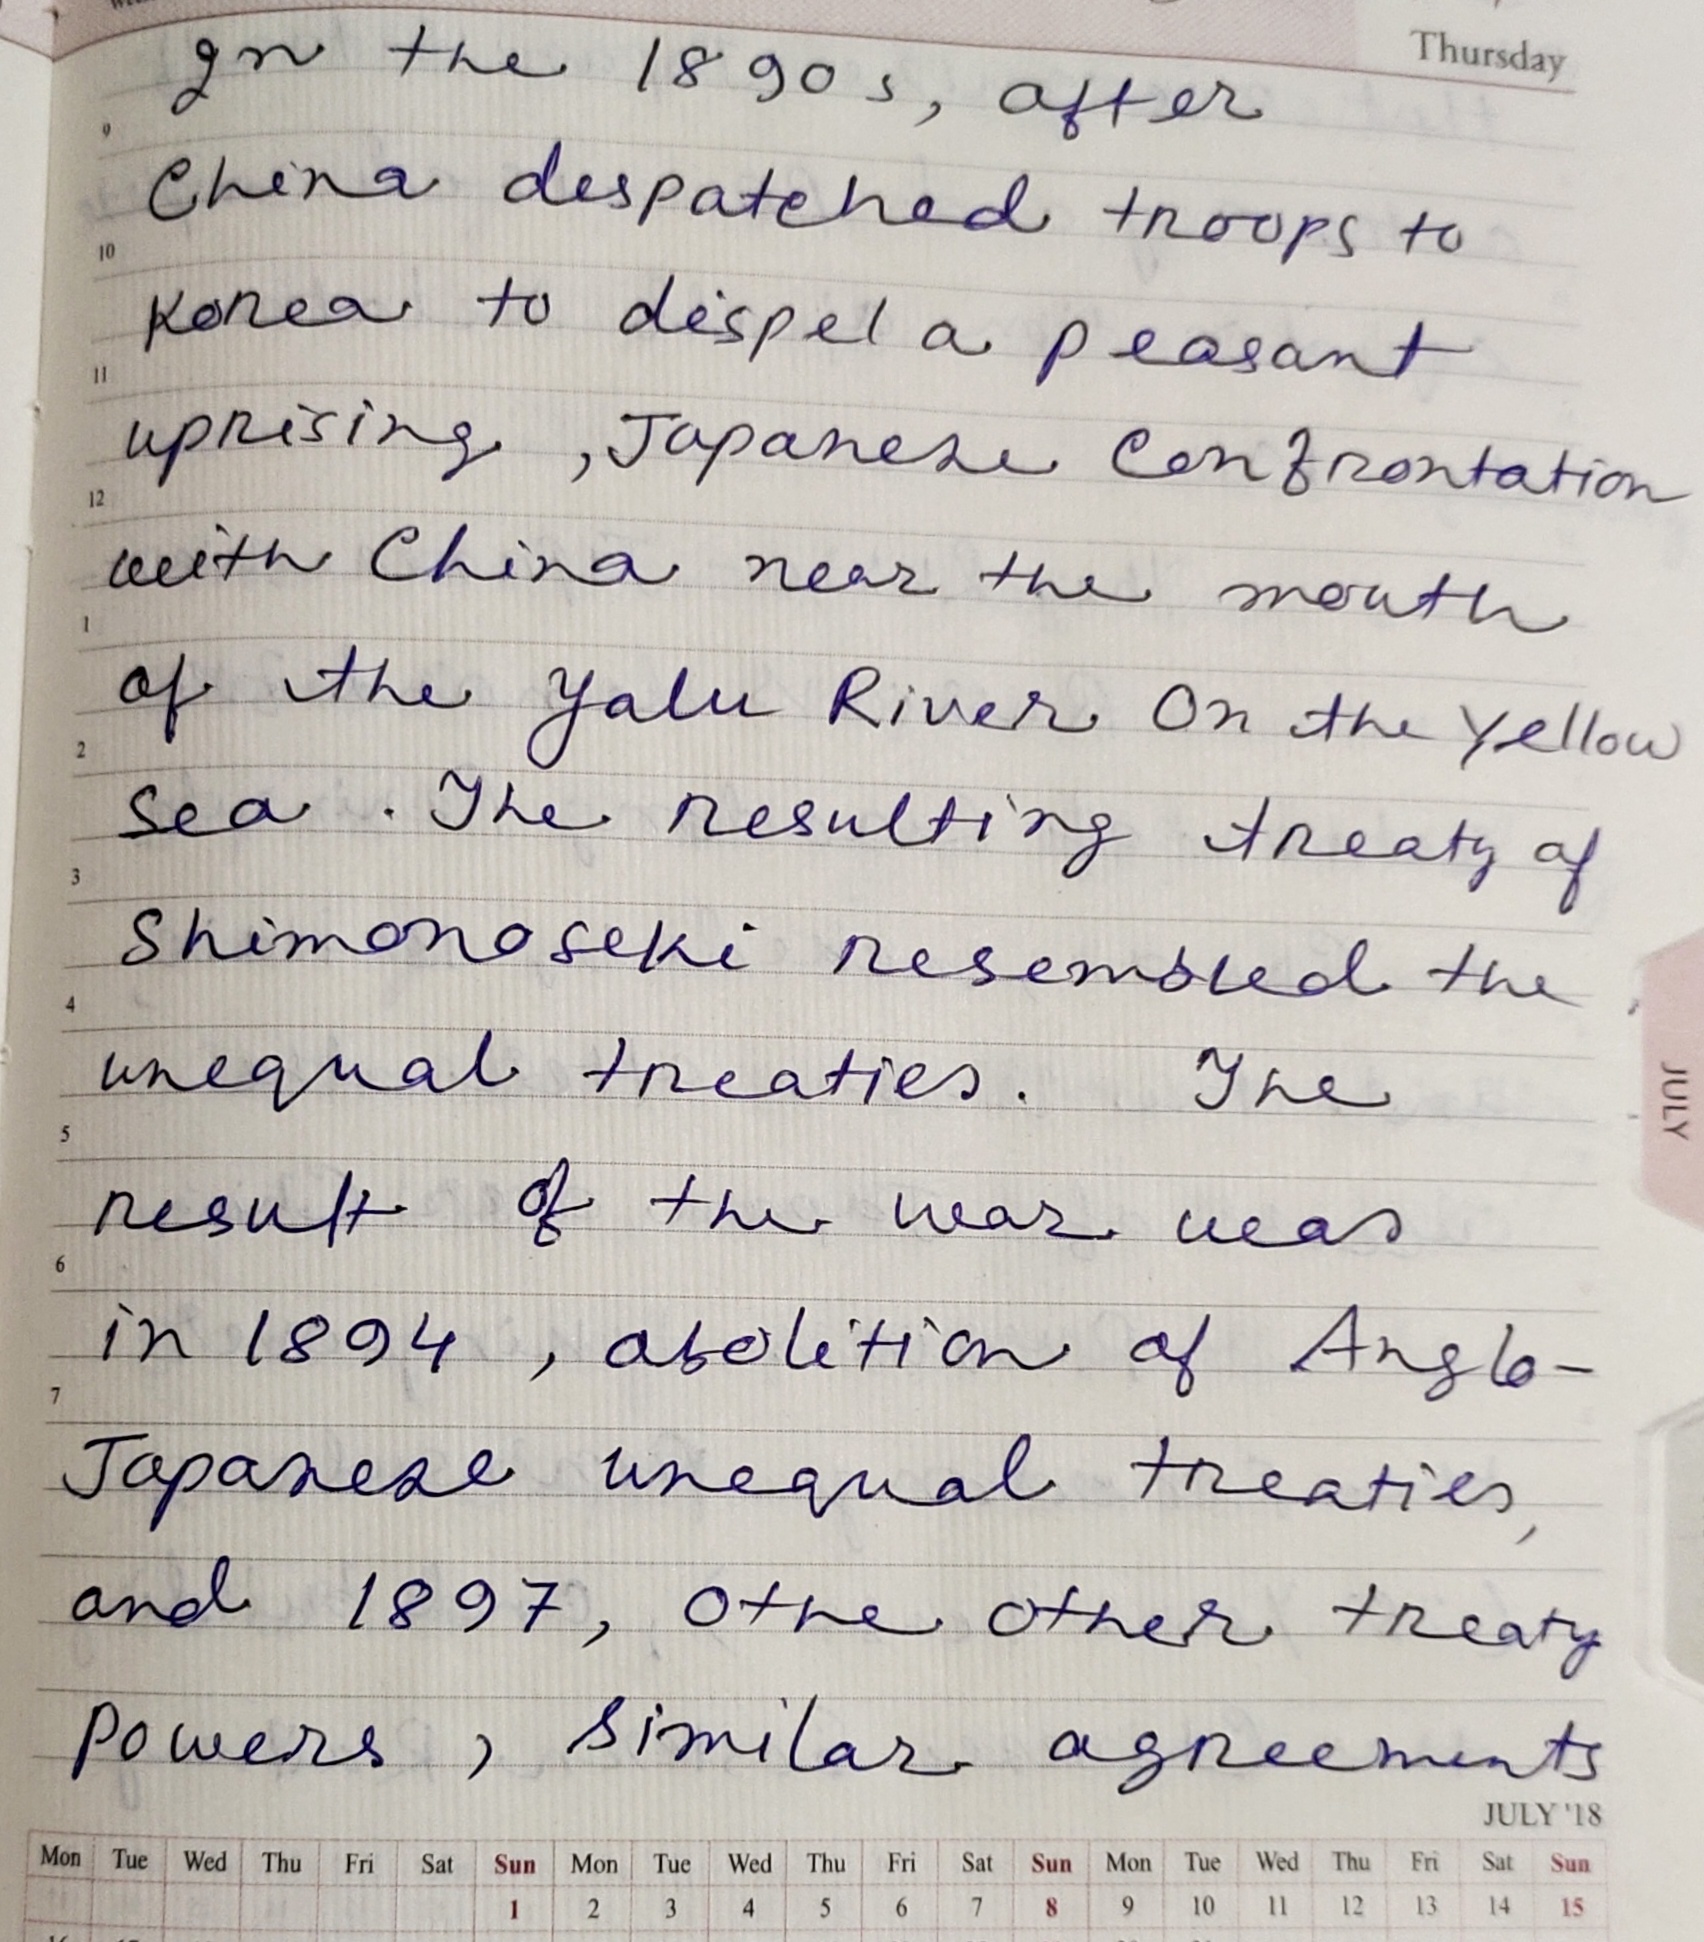 Thursday
In the 1890s, after
9
China despatched troops to
10
Korea to dispel a peasant
11
uprising, Japanese Confrontation
12
with China near the mouth
1
of the Yalu River On the Yellow
2
Sea. The resulting treaty of
3
Shimonoseki resembled the
4
unequal treaties. The
JULY
5
result of the war was
6
in 1894, abolition of Anglo-
7
Japanese unequal treaties,
and 1897, Othe other treaty
Powers, similar agreements
JULY '18
Mon Tue Wed Thu Fri Sat Sun Mon Tue Wed Thu Fri Sat Sun Mon Tue Wed Thu Fri Sat Sun
1 2 3 4 5 6 7 8 9 10 11 12 13 14 15